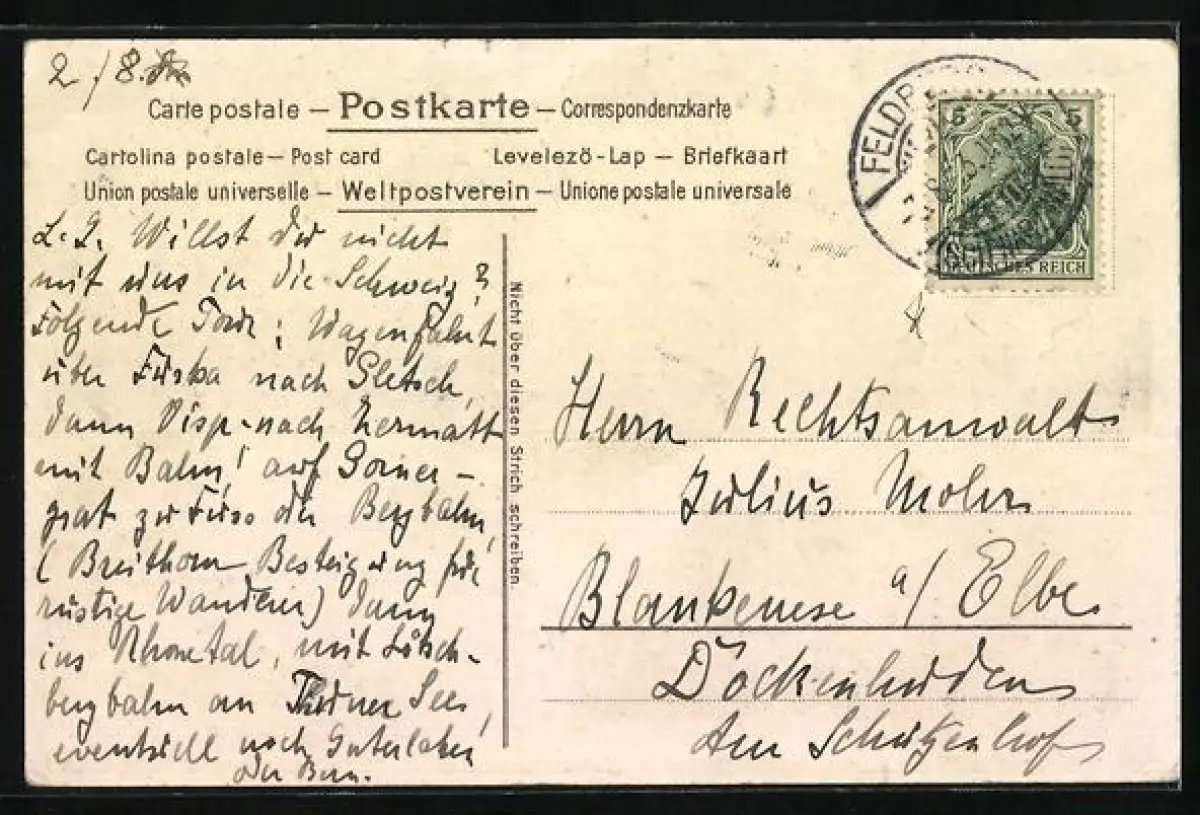 2/8.
Carte postale – Postkarte – Correspondenzkarte
Cartolina postale – Post card Levelezö-Lap – Briefkaart
Union postale universelle – Weltpostverein – Unione postale universale
L. J. Willst du nicht
mit uns in die Schweiz?
Folgende Tour: Wagenfahrt
über Furka nach Gletsch,
dann Visp-nach Zermatt
mit Bahn, auf Gorner-
grat zu Fuss oder Bergbahn,
(Breithorn Besteigung für
rüstige Wanderer) dann
ins Rhonetal, mit Lötsch-
bergbahn an Thuner See,
eventuell noch Interlaken
oder Bern.
Nicht über diesen Strich schreiben.
FELDB
5 5
DEUTSCHES REICH
Herrn Rechtsanwalt
Julius Mohr
Blankenese a/ Elbe
Dockenhuden
Am Schützenhof